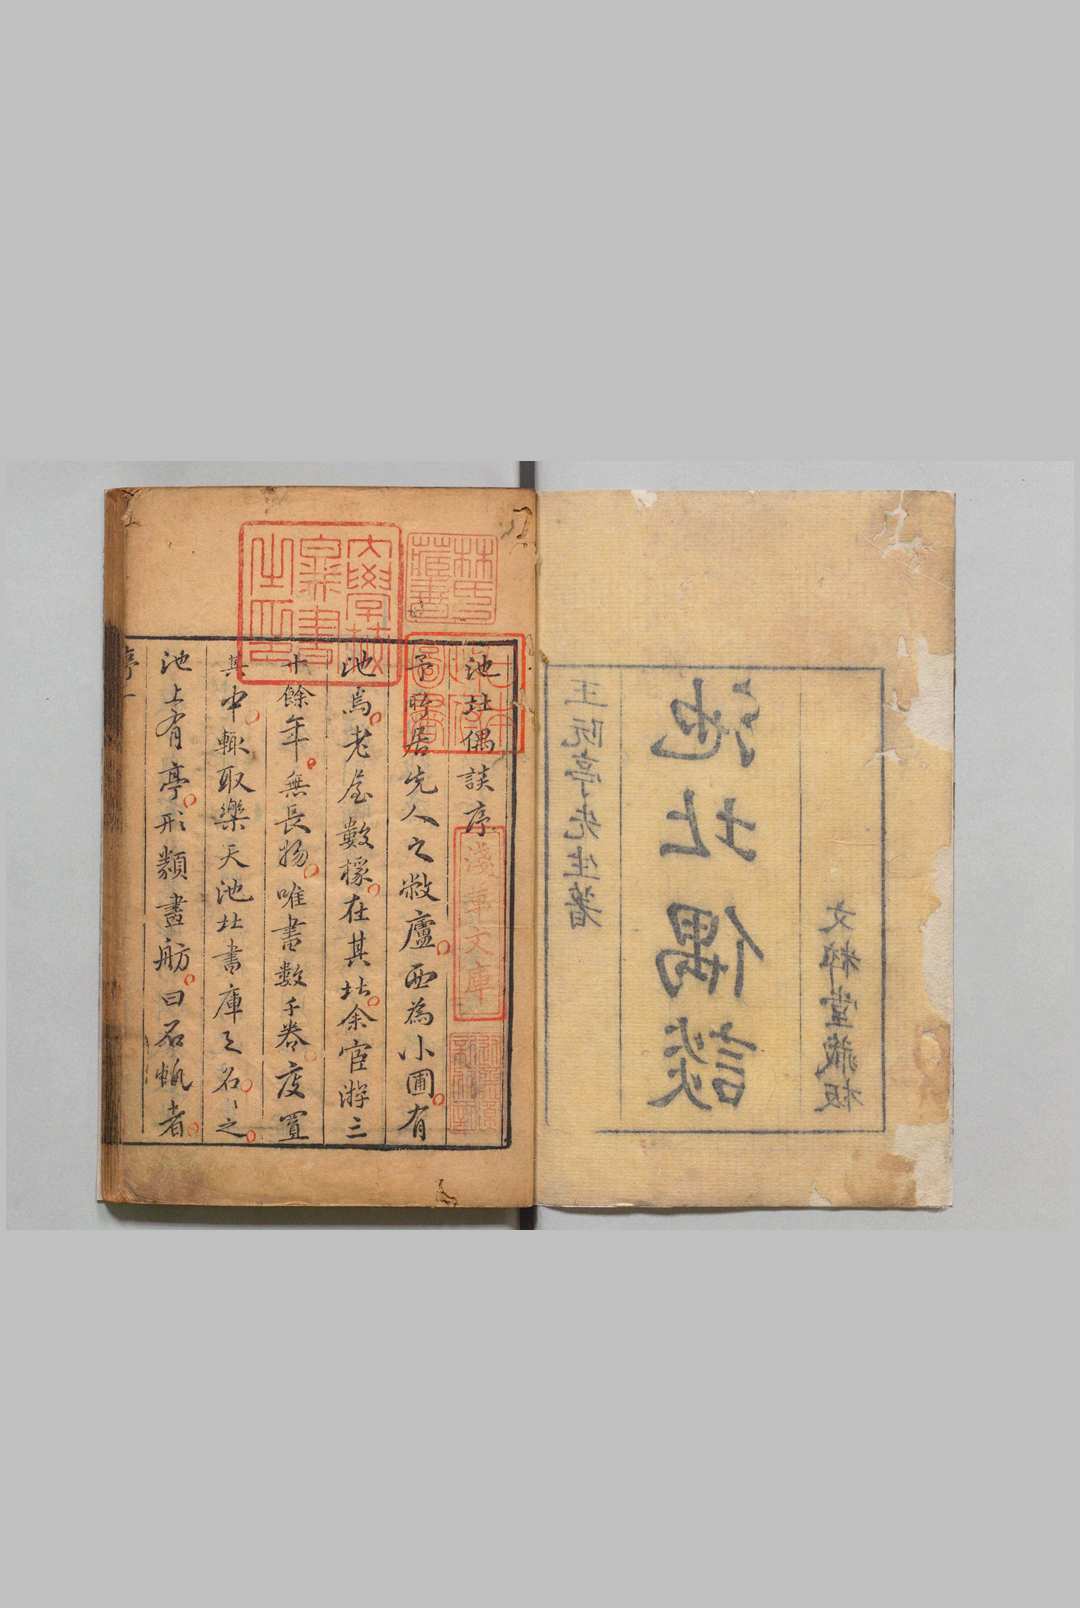 王阮亭先生著
池北偶談
文粹堂藏板
池北偶談序
予所居先人之敝廬西為小圃有
池焉老屋數椽在其北余宦游三
十餘年無長物唯書數千卷庋置
其中輒取樂天池北書庫之名名之
池上有亭形類畫舫曰石帆者
序
一
林氏
藏書
淺草文庫